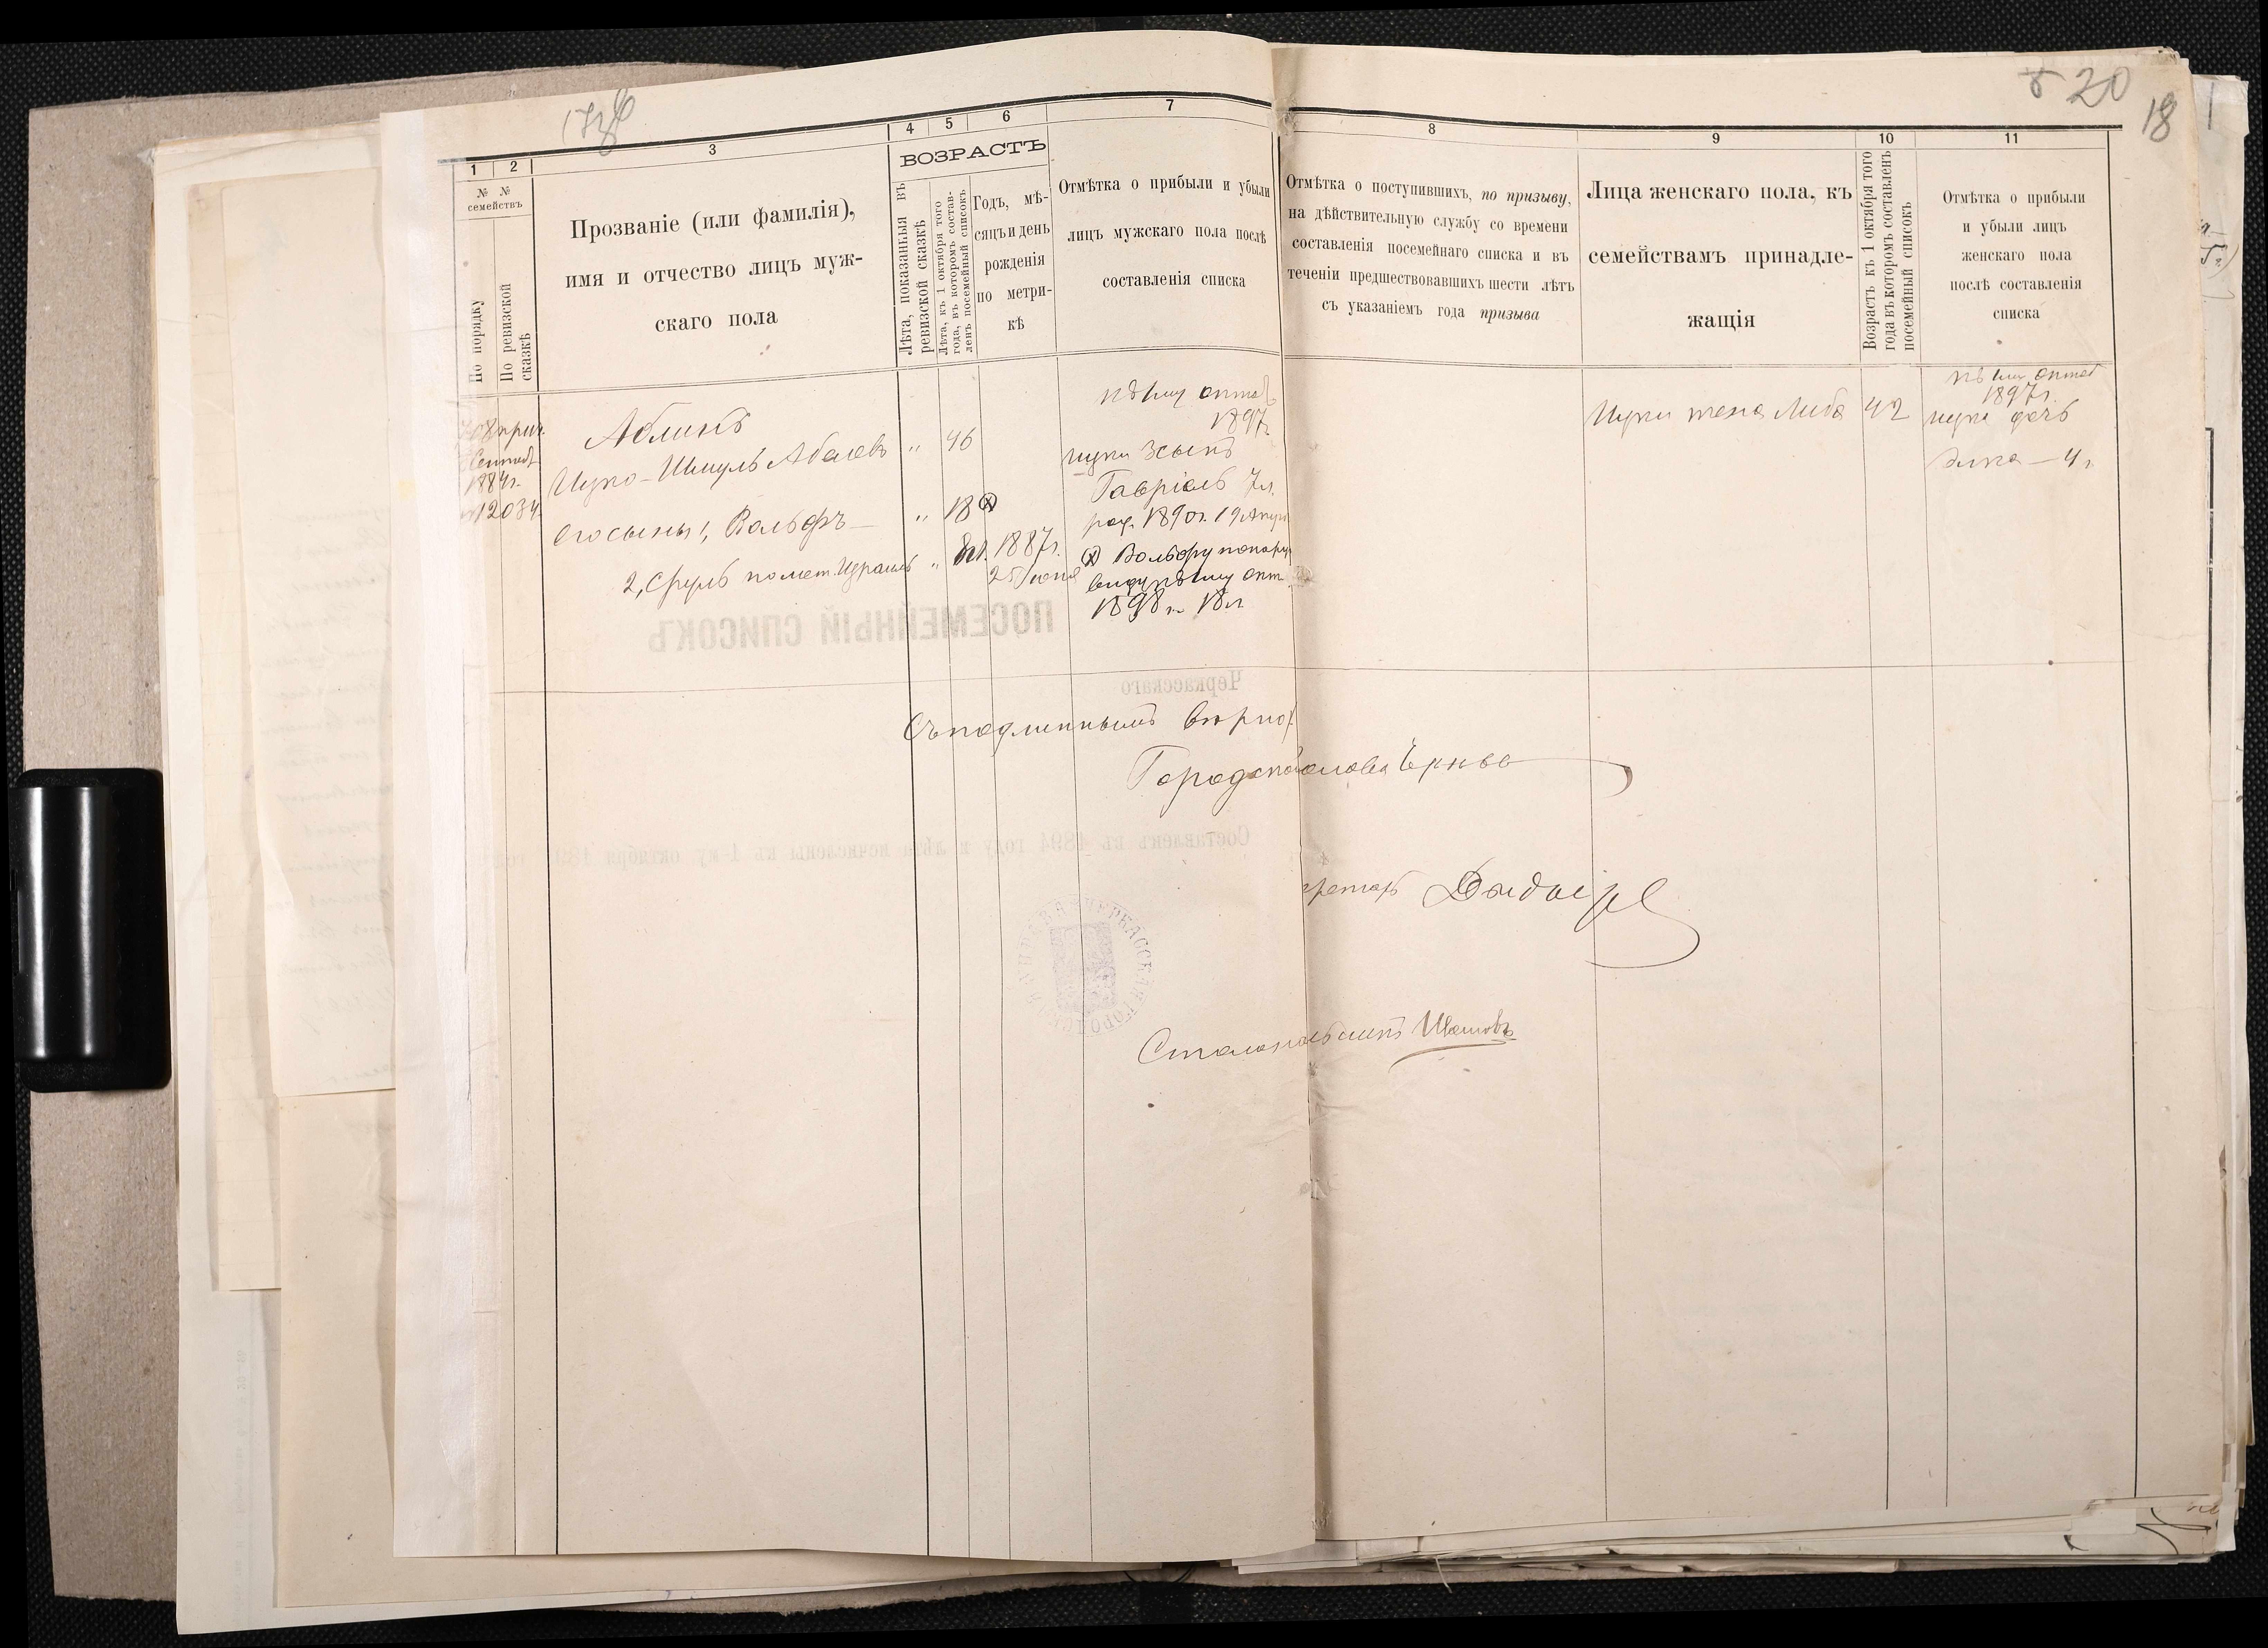 20
18
1 2 3 4 5 6 7
8 9 10 11
№ № семействъ
По порядку
По ревизской сказкѣ
Прозваніе (или фамилія),
имя и отчество лицъ муж-
скаго пола
ВОЗРАСТЪ
Лѣта, показанныя въ
ревизской сказкѣ
Лѣта, къ 1 октября того
года, въ которомъ состав-
ленъ посемейный списокъ
Годъ, мѣ-
сяцъ и день
рожденія
по метри-
кѣ
Отмѣтка о прибыли и убыли
лицъ мужскаго пола послѣ
составленія списка
Отмѣтка о поступившихъ, по призыву,
на дѣйствительную службу со времени
составленія посемейнаго списка и въ
теченіи предшествовавшихъ шести лѣтъ
съ указаніемъ года призыва
Лица женскаго пола, къ
семействамъ принадле-
жащія
Возрастъ къ 1 октября того
года въ которомъ составленъ
посемейный списокъ
Отмѣтка о прибыли
и убыли лицъ
женскаго пола
послѣ составленія
списка
1884г.
12034
Аблинъ
Ицко-Шмуль Абелевъ " 46
его сыны 1, Вольфъ " 18
2, Сруль по мет. Израиль " 1887г.
25 Іюня
къ 1му октяб
1897г.
Ицки 3 сынъ
Гавріель 7 л.
род. 1890г. 19 Апр
Вольфу по нару
виду къ 1му окт
1898 г. 18 л
Ицки жена Либа 42
къ 1му октяб
1897г.
Ицки дочь
Элка - 4 г.
ПОСЕМЕЙНЫЙ СПИСОКЪ
Черкасскаго
Съ подлиннымъ вѣрно:
Городской голова
Составленъ въ 1894 году и лѣта исчислены къ 1-му октября
кретарь
ЧЕРКАССКАЯ ГОРОДСКАЯ УПРАВА
Столоначальникъ